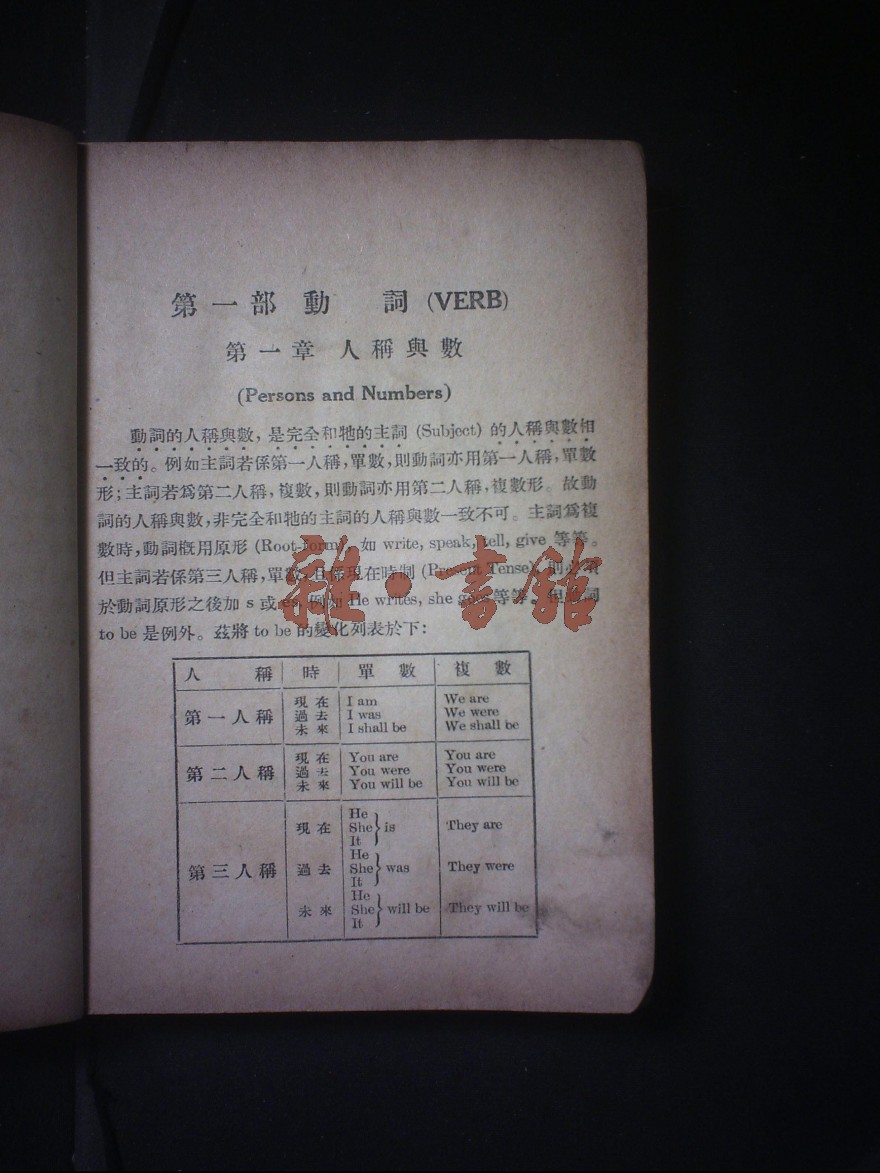 第一部 動 詞 (VERB)
第一章 人稱與數
(Persons and Numbers)
動詞的人稱與數, 是完全和牠的主詞 (Subject) 的人稱與數相
一致的。例如主詞若係第一人稱, 單數, 則動詞亦用第一人稱, 單數
形; 主詞若爲第二人稱, 複數, 則動詞亦用第二人稱, 複數形。故動
詞的人稱與數, 非完全和牠的主詞的人稱與數一致不可。主詞爲複
數時, 動詞槪用原形 (Root-form), 如 write, speak, tell, give 等等。
但主詞若係第三人稱, 單數, 且係現在時制 (Present Tense) 則必須
於動詞原形之後加 s 或 es, 例如 He writes, she goes 等等。但動詞
to be 是例外。茲將 to be 的變化列表於下:
雜·書館
人 稱 時 單 數 複 數
第一人稱
現在 I am We are
過去 I was We were
未來 I shall be We shall be
第二人稱
現在 You are You are
過去 You were You were
未來 You will be You will be
第三人稱
現在 He She It } is They are
過去 He She It } was They were
未來 He She It } will be They will be